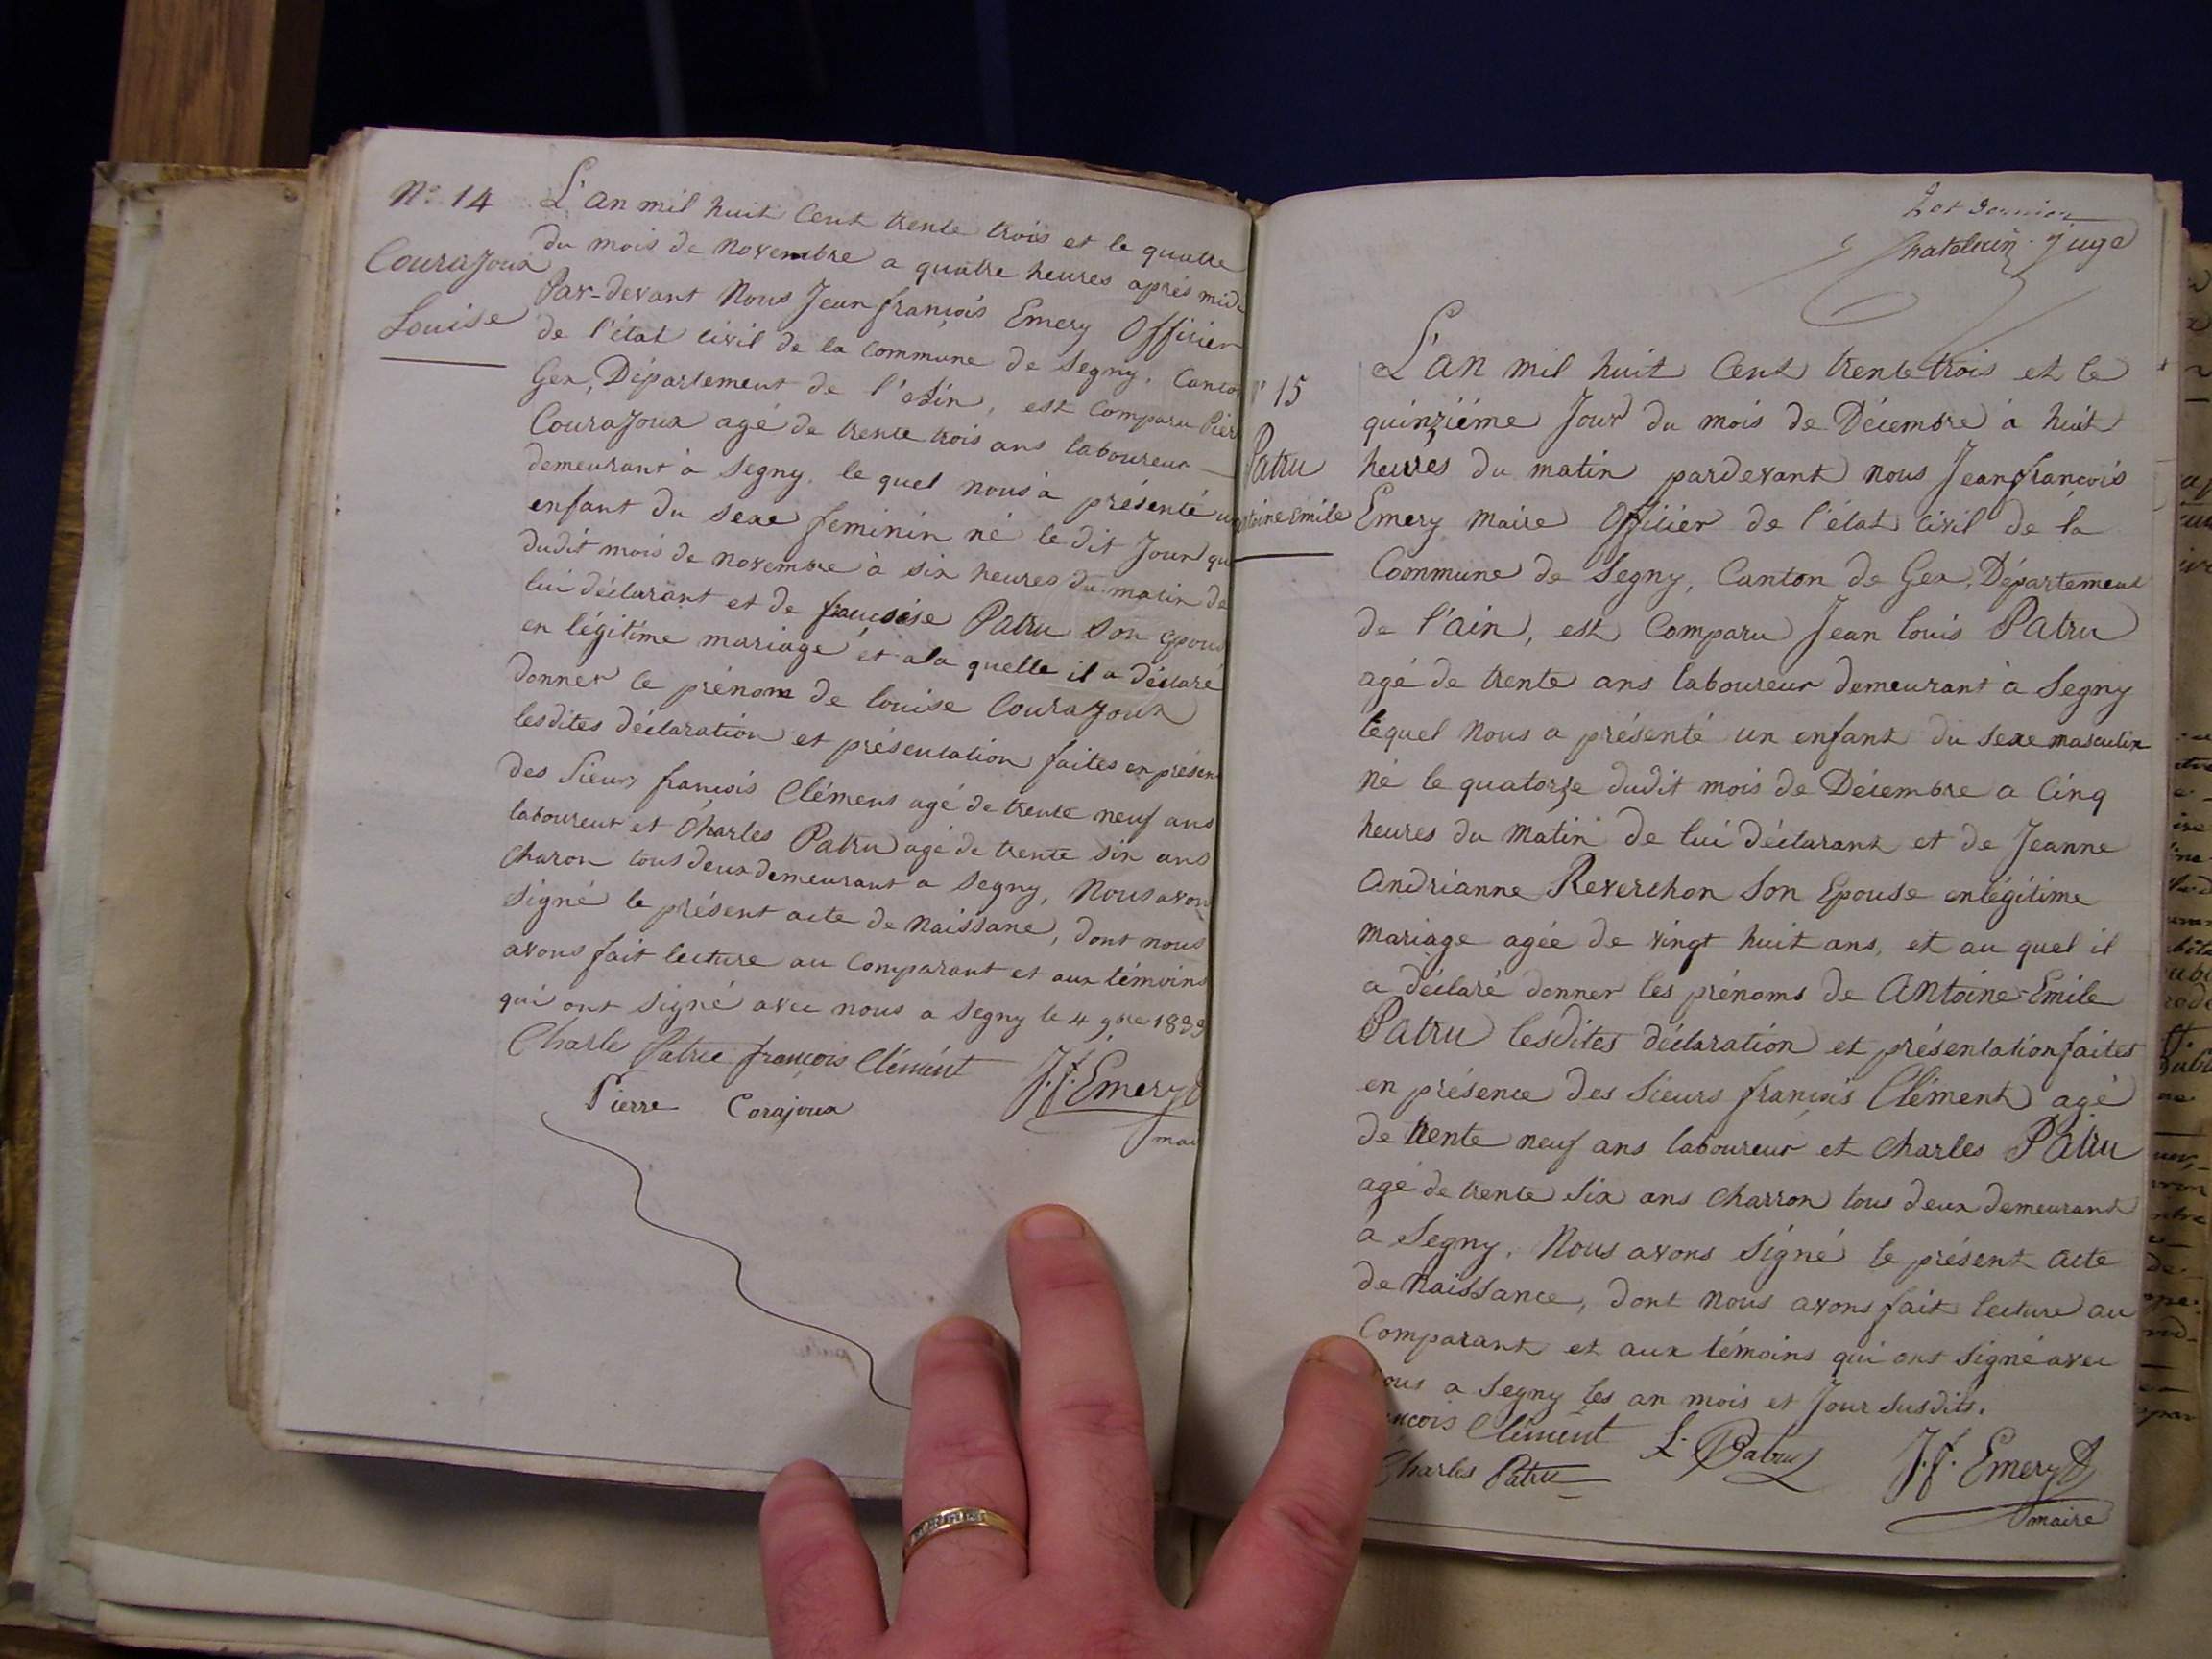 N.º 14
Courajoux
Louise
L'an mil huit Cent trente trois et le quatre
du mois de novembre a quatre heures après midi
Par-devant Nous Jean françois Emery Officier
de l'état civil de la commune de Segny, Canto
Gex, Département de l'Ain, est Comparu Pier
Courajoux agé de trente trois ans laboureur
demeurant à Segny, le quel nous à présenté un
enfant du sexe feminin né le dit Jour qu
dudit mois de novembre à six heures du matin de
lui déclarant et de francoise Patru son epous
en légitime mariage et a la quelle il a déclaré
donner le prénom de louise Courajoux
lesdites déclaration et présentation faites en présen
des Sieurs françois Clément agé de trente neuf ans
laboureur et Charles Patru agé de trente six ans
Charon tous deux demeurant a Segny, Nous avon
signé le présent acte de Naissance, dont nous
avons fait lecture au Comparant et aux témoins
qui ont signé avec nous a Segny le 4 9bre 1833
Charle Patru françois Clément J.f. Emery
Pierre Corajoux mai
Chatelain Juge
15
Patru
toine Emile
L'an mil huit Cent trente trois et le
quinziéme Jour du mois de Décembre à huit
heures du matin pardevant nous Jean françois
Emery Maire Officier de l'état civil de la
Commune de Segny, Canton de Gex, Département
de l'ain, est Comparu Jean louis Patru
agé de trente ans laboureur demeurant à Segny
lequel Nous a présenté un enfant du sexe masculin
né le quatorze dudit mois de Décembre a Cinq
heures du Matin de lui déclarant et de Jeanne
Andrianne Reverchon son Epouse en légitime
mariage agée de vingt huit ans, et au quel il
a déclaré donner les prénoms de Antoine-Emile
Patru lesdites déclaration et présentation faites
en présence des Sieurs françois Clément agé
de trente neuf ans laboureur et Charles Patru
agé de trente six ans Charron tous deux demeurant
a Segny, Nous avons Signé le présent acte
de Naissance, dont nous avons fait lecture au
Comparant et aux témoins qui ont signé avec
ous a Segny les an mois et Jour susdits.
ncois Clément L. Patru J.f. Emery
Charles Patru maire